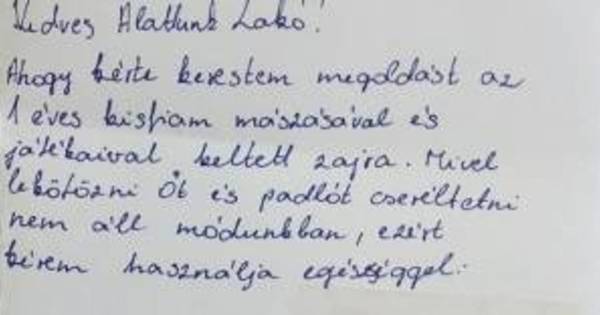 Kedves Alattunk Lakó!
Ahogy kérte kerestem megoldást az
1 éves kisfiam mászásával és
játékaival keltett zajra. Mivel
lekötözni Őt és padlót cseréltetni
nem áll módunkban, ezért
kérem használja egészséggel.